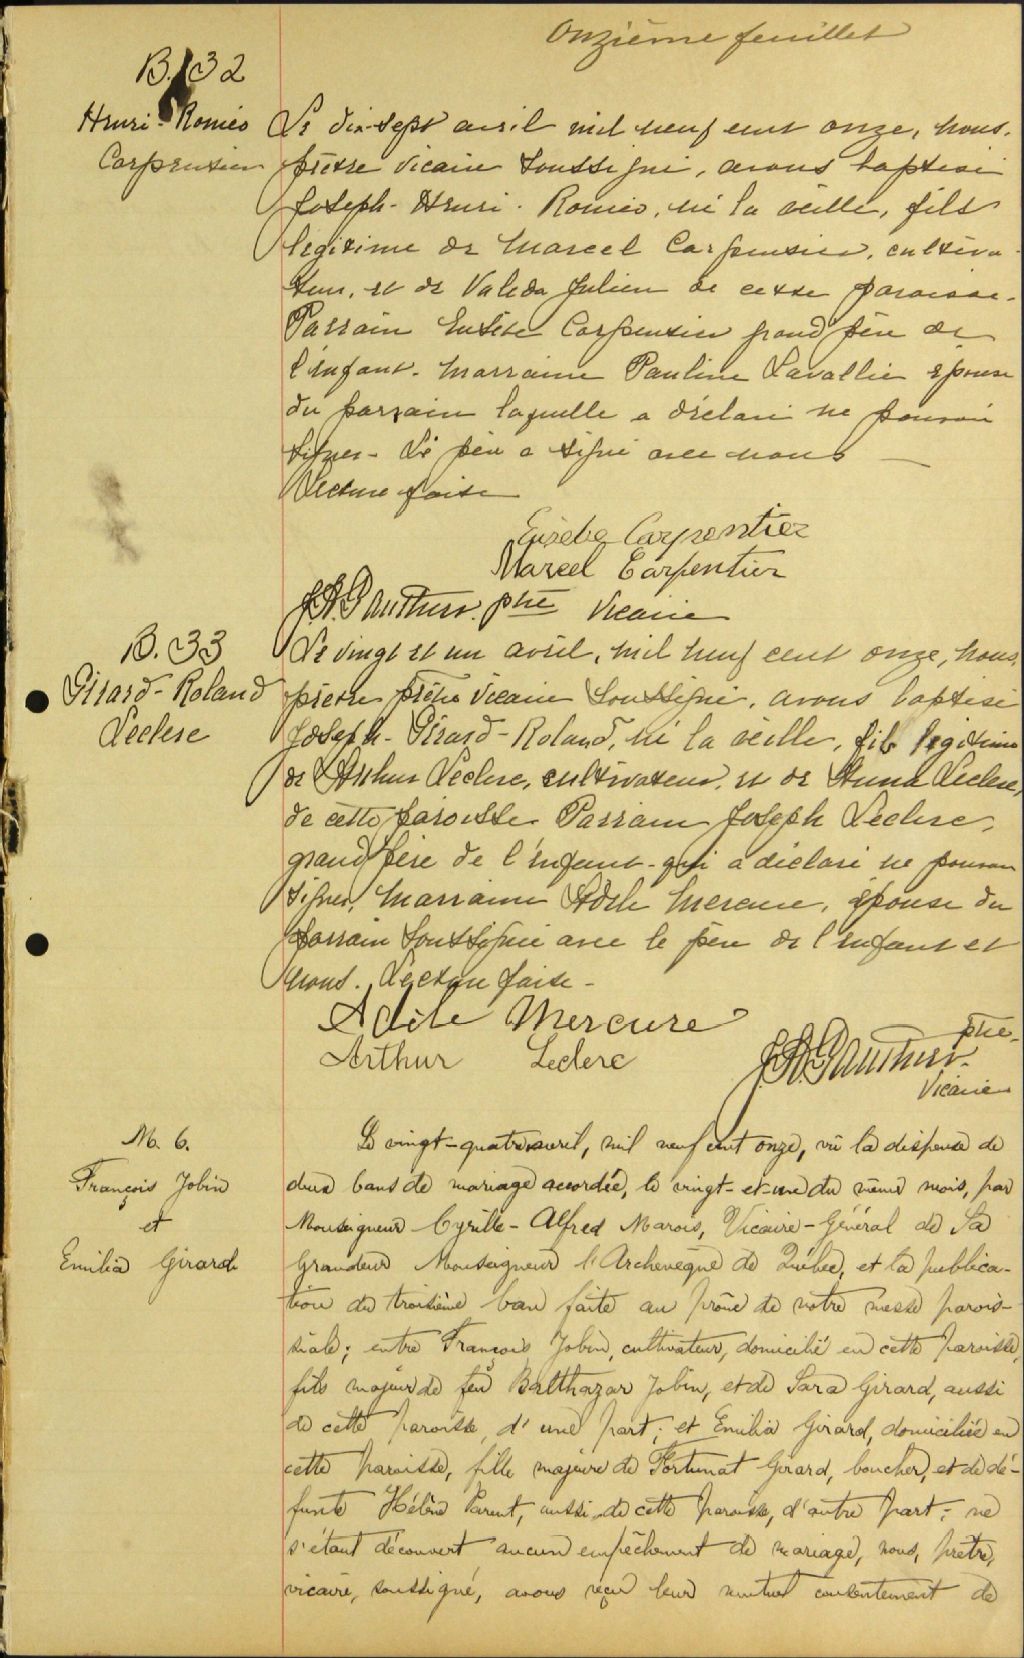 Onzième feuillet
B. 32
Henri-Roméo
Carpentier
Le dix-sept avril mil neuf cent onze, nous,
prêtre vicaire soussigné, avons baptisé
Joseph-Henri-Roméo, né la veille, fils
légitime de Marcel Carpentier, cultiva-
teur, et de Valéda Julien de cette paroisse.
Parrain Eusèbe Carpentier grand'père de
l'enfant. Marraine Pauline Lavallée épouse
du parrain laquelle a déclaré ne pouvoir
signer. Le père a signé avec nous
Lecture faite
Eusèbe Carpentier
Marcel Carpentier
J.A. Gauthier. ptre Vicaire
B. 33
Gérard-Roland
Leclerc
Le vingt et un avril, mil neuf cent onze, nous,
prêtre prêtre vicaire soussigné, avons baptisé
Joseph-Gérard-Roland, né la veille, fils légitime
de Arthur Leclerc, cultivateur, et de Anna Leclerc,
de cette paroisse. Parrain Joseph Leclerc,
grand'père de l'enfant qui a déclaré ne pouvoir
signer, Marraine Adèle Mercure, épouse du
parrain soussignée avec le père de l'enfant et
nous. Lecture faite -
Adèle Mercure
Arthur Leclerc
J.A. Gauthier. ptre.
Vicaire
M. 6.
François Jobin
et
Emilia Girard
Le vingt-quatre avril, mil neuf cent onze, vû la dispense de
deux bans de mariage accordée, le vingt-et-un du même mois, par
Monseigneur Cyrille-Alfred Marois, Vicaire-Général de Sa
Grandeur Monseigneur l'Archevêque de Québec, et la publica-
tion du troisième ban faite au prône de notre messe parois-
siale; entre François Jobin, cultivateur, domicilié en cette paroisse,
fils majeur de feu Balthazar Jobin, et de Sara Girard, aussi
de cette paroisse, d'une part; et Emilia Girard, domiciliée en
cette paroisse, fille majeure de Fortunat Girard, boucher, et de dé-
funte Hélène Parent, aussi de cette paroisse, d'autre part; ne
s'étant découvert aucun empêchement de mariage, nous, prêtre,
vicaire, soussigné, avons reçu leur mutuel consentement de